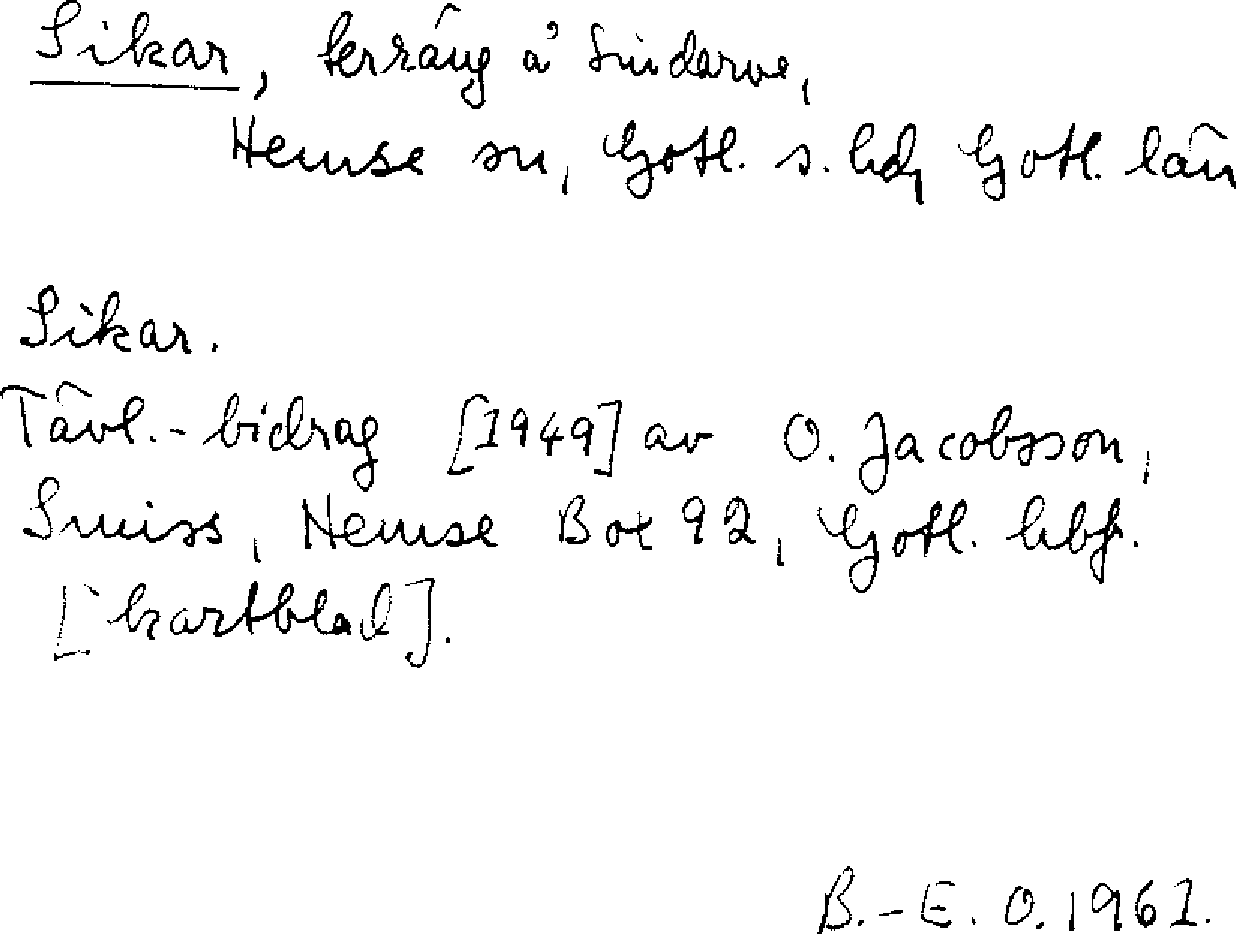 Sikar, terräng å Sindarve,
Hemse sn, Gotl. s. hd, Gotl. län
Sikar.
Tävl.-bidrag [1949] av O. Jacobsson,
Smiss, Hemse Box 92, Gotl. hbf.
[kartblad].
B.-E. O. 1961.